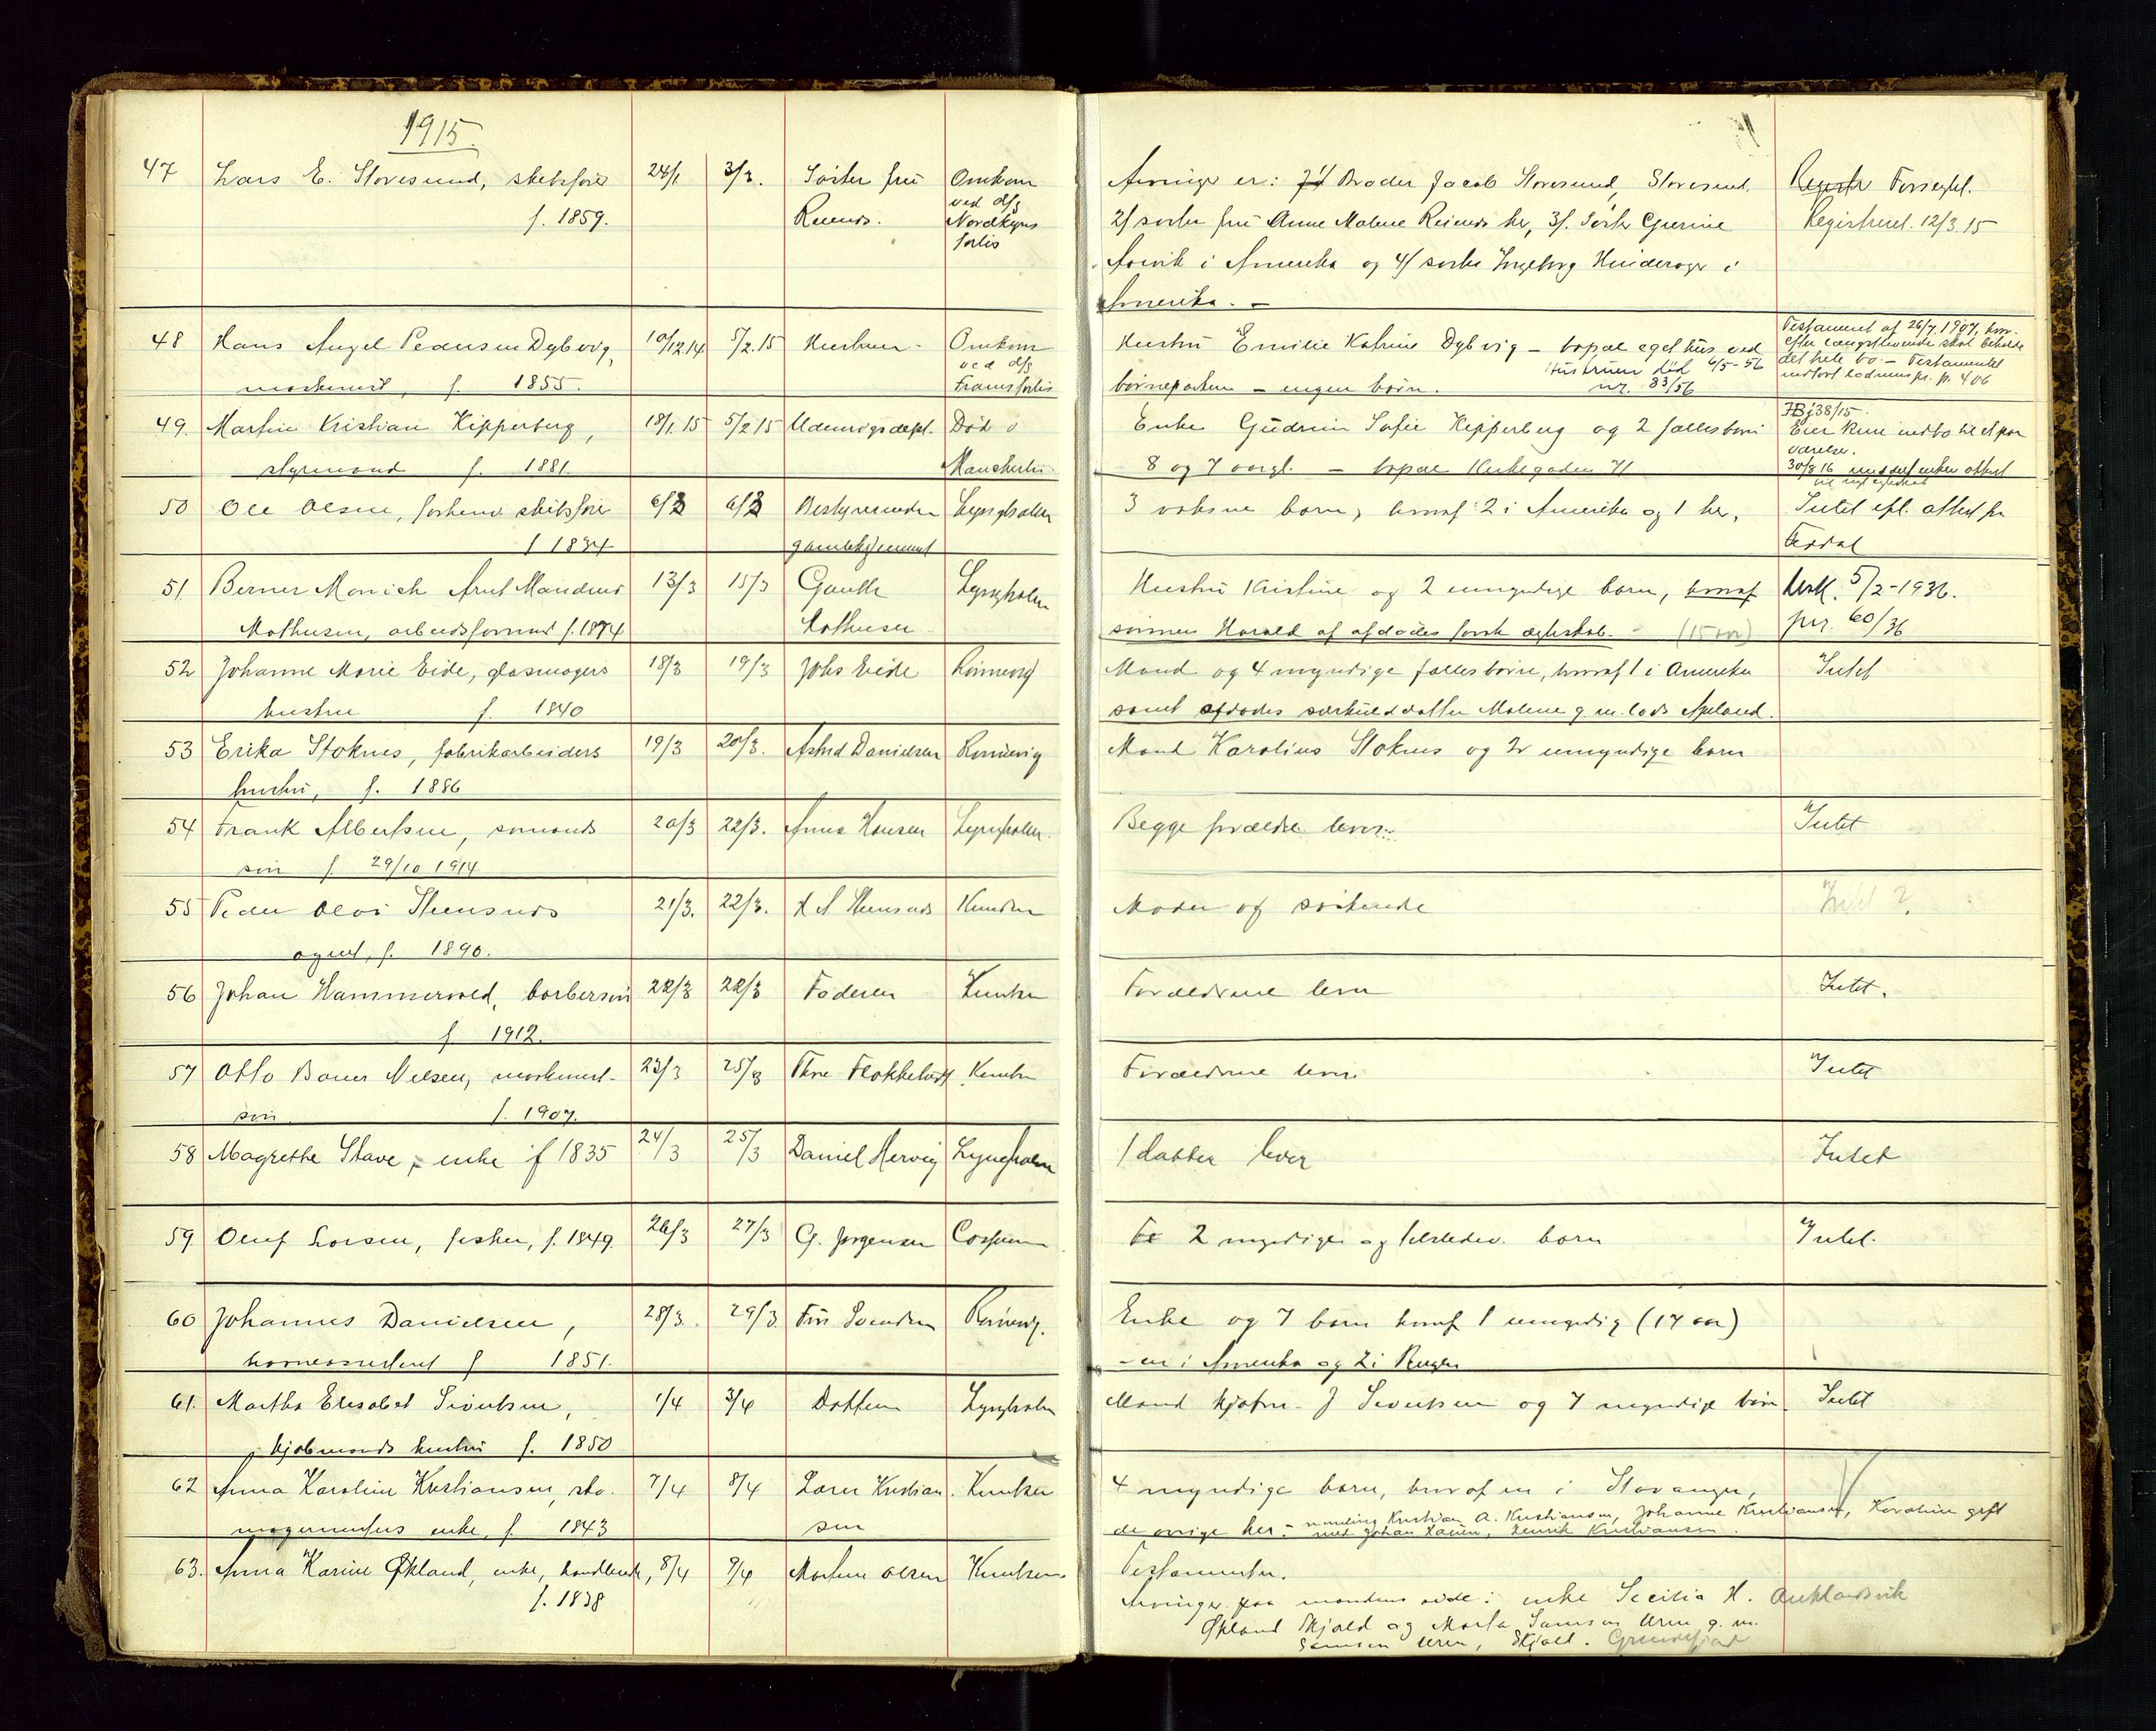 1915.
47 Lars E. Storesund, skibsfører 24/1 3/3. Søster fru Omkom
f. 1859. Reiends. ved d/s Nordkyns forlis
Arvinger er: 1/ Broder Jacob Storesund, Storesund. Forseglet.
2/ søster fru Anne Malene Reiends her, 3/. Søster Gurine Registreret. 12/3 15
i Amerika og 4/ søster Ingeborg i
Amerika. –
48 Hans Angel Pedersen Dybvig, 10/12.14 5/2.15 Hustruen Omkom ved d/s
maskinist, f. 1855. Frams forlis
Hustru Emilie Katrine Dybvig – bopæl eget hus ved
Hustruen død 6/5-56
børneparken – ingen børn. nr. 83/56
Testament af 26/7 1907, hvor-
efter længstlevende skal beholde
det hele bo. – Testamentet
49. Martin Kristian Kipperberg, 18/1.15 5/2 15 Udenrigsdept. Død i
styrmand f. 1881. Manchester.
Enke Gudrun Sofie Kipperberg og 2 fællesbørn
8 og 7 aar gl. – bopæl Kirkegaden 71
JB j 38/15.
Eier kun indbo til et par
værelser.
30/8 16 enken attest
50 Ole Olsen, forhenv. skibsfører 6/3 6/3 Bestyrerinden Lyngholm
f 1834 gamlehjemmet
3 voksne børn, hvoraf 2 i Amerika og 1 her, Intet efl. attest fra
51 Berner Monich Arnt Mandrus 13/3 15/3 Gauthe Lyngholm
Mathiesen, arbeidsformand f. 1874 Mathiesen
Hustru Kristine og 2 umyndige børn, hvoraf 5/2-1936.
sønnen Harald af afdødes første ægteskab. – (15 aar) 60/36
52 Johanne Marie Eide, glasmagers 18/3 19/3 Johs Eide Rønnevig
hustru f. 1840
Mand og 4 myndige fællesbørn, hvoraf 1 i Amerika Intet
samt afdødes særkuldsdatter Malene g. m. lods Apeland.
53 Erika Stoknes, fabrikarbeiders 19/3 20/3. Astrid Danielsen Rønnevig
hustru, f. 1886
Mand Karolius Stoknes og 2 umyndige børn
54 Frank Albertsen, sømands 20/3 22/3. Anna Hansen Lyngholm.
søn f. 29/10 1914
Begge forældre lever. Intet
55 Peder Olai Stensnes 21/3. 22/3. Knudsen
agent, f. 1890.
Moder og søskende Intet ?
56 Johan Hammervold, barbersøn 22/3 22/3 Faderen Knudsen
f 1912.
Forældrene lever Intet.
57 Otto Bauer Nielsen, maskinist- 23/3 25/3 Thrine Flokketvedt Knudsen
søn f. 1907.
Forældrene lever Intet
58 Magrethe Stave, enke f 1835 24/3 25/3 Daniel Hervig Lyngholm
1 datter lever Intet
59 Oluf Larsen, fisker, f. 1849. 26/3 27/3 G. Jørgensen Caspersen
2 myndige og børn Intet.
60 Johannes Danielsen, 28/3. 29/3. Fru Svendsen Rønnevig.
havneassistent f 1851.
Enke og 7 børn hvoraf 1 umyndig (17 aar)
– en i Amerika og 2 i
61. Martha Elisabet Sivertsen, 1/4 3/4 Datteren Lyngholm
kjøbmands hustru f. 1850
Mand kjøbm. J Sivertsen og 7 myndige børn. Intet
62 Anna Karoline Kristiansen, sko- 7/4 8/4 Lars Kristian- Knudsen
magermesters enke, f. 1843 sen
4 myndige børn, hvoraf en i Stavanger,
de øvrige her. – nemlig Kristian A. Kristiansen, Johanne Kristiansen, Karoline gift
med Johan Larsen, Henrik Kristiansen
63. Anna Karine Økland, enke, handlende, 8/4 9/4 Martin Olsen Knudsen
f. 1838
Testamenter.
Arvinger paa mandens side: enke Secilia H. Auklandsvik
Økland Skjold og Marta Samson Uren g. m.
Samson Uren, Skjold.